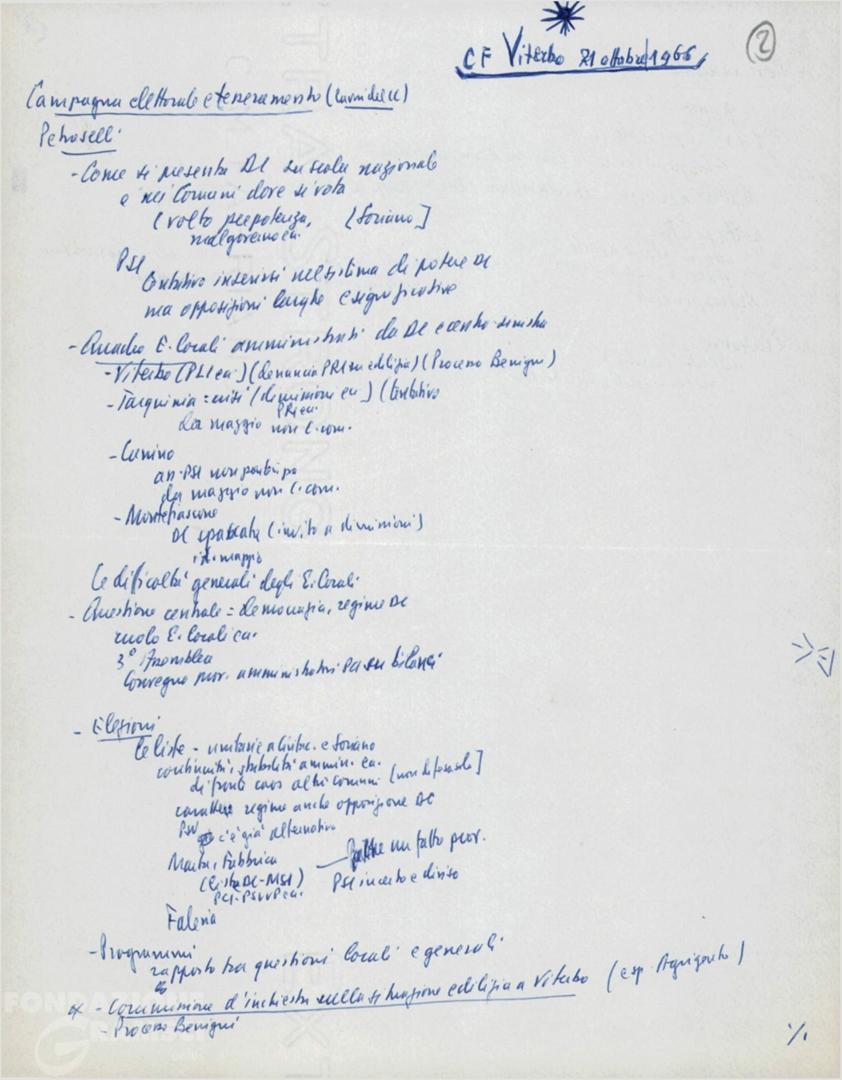 2
CF Viterbo 21 ottobre 1966
Campagna elettorale e tesseramento
Petroselli
- Come si presenta DC su scala nazionale
e nei Comuni dove si vota
(volto prepotenza, [Soriano]
malgoverno ecc.
PSI
tentativo inserirsi nel sistema di potere DC
ma opposizioni larghe e significative
- Quadro E. locali amministrati da DC e centro-sinistra
- Viterbo (PLI ecc.) (denuncia PRI su edilizia) (Processo Benigni)
- Tarquinia = crisi (dimissioni ecc.) (tentativo
PRI ecc.
da maggio non C. com.
- Canino
an. PSI non partecipa
da maggio non C. com.
- Montefiascone
DC spaccata (invito a dimissioni)
maggio
Le difficoltà generali degli E. locali
- Questione centrale = democrazia, regime DC
ruolo E. locali ecc.
3° Assemblea
Convegno prov. amministratori PCI su bilanci
- Elezioni
Le liste - unitarie a Civita. e Soriano
continuità, stabilità ammin. ecc.
di fronte caos altri comuni
carattere regime anche opposizione DC
PSU c'è già alternativa
Marta, Fabbrica — un fatto prov.
(Lista DC-MSI) PSI incerto e diviso
PCI-PSIUP ecc.
Faleria
- Programmi
rapporto tra questioni locali e generali
x - Commissione d'inchiesta sulla situazione edilizia a Viterbo (esp. Agrigento)
- Processo Benigni
./.
FONDAZIONE
GRAMSCI